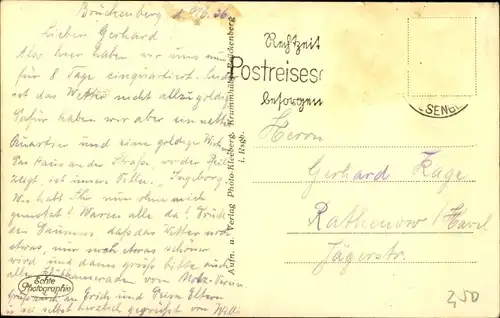 Brückenberg 1.6.36
Lieben Gerhard
Also hier haben wir uns nun
für 8 Tage einquartiert. Leider
ist das Wetter nicht allzu goldig
Dafür haben wir aber ein nettes
Quartier und eine goldige Wirtin
Das Haus an der Straße, wo der Pfeil
zeigt, ist unsere Villa „Ingeborg"
Wie habt Ihr nun ohne mich
geturnt? Waren alle da? Drück
den Daumen daß das Wetter noch
etwas, nur noch etwas schöner
wird und dann grüß bitte auch
alle
und Deine Eltern
sei selbst herzlich gegrüßt von Willi
Echte
Photographie
Aufn. u. Verlag Photo-Kleeberg, Krummhübel-Brückenberg
i. Rsgb.
Rechtzeitig
Postreisesc
besorgen
SENGE
Herrn
Gerhard Kage
Rathenow / Havel
Jägerstr.
2,50